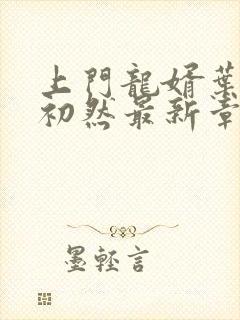 上門龍婿葉
初然最新章
墨輕言